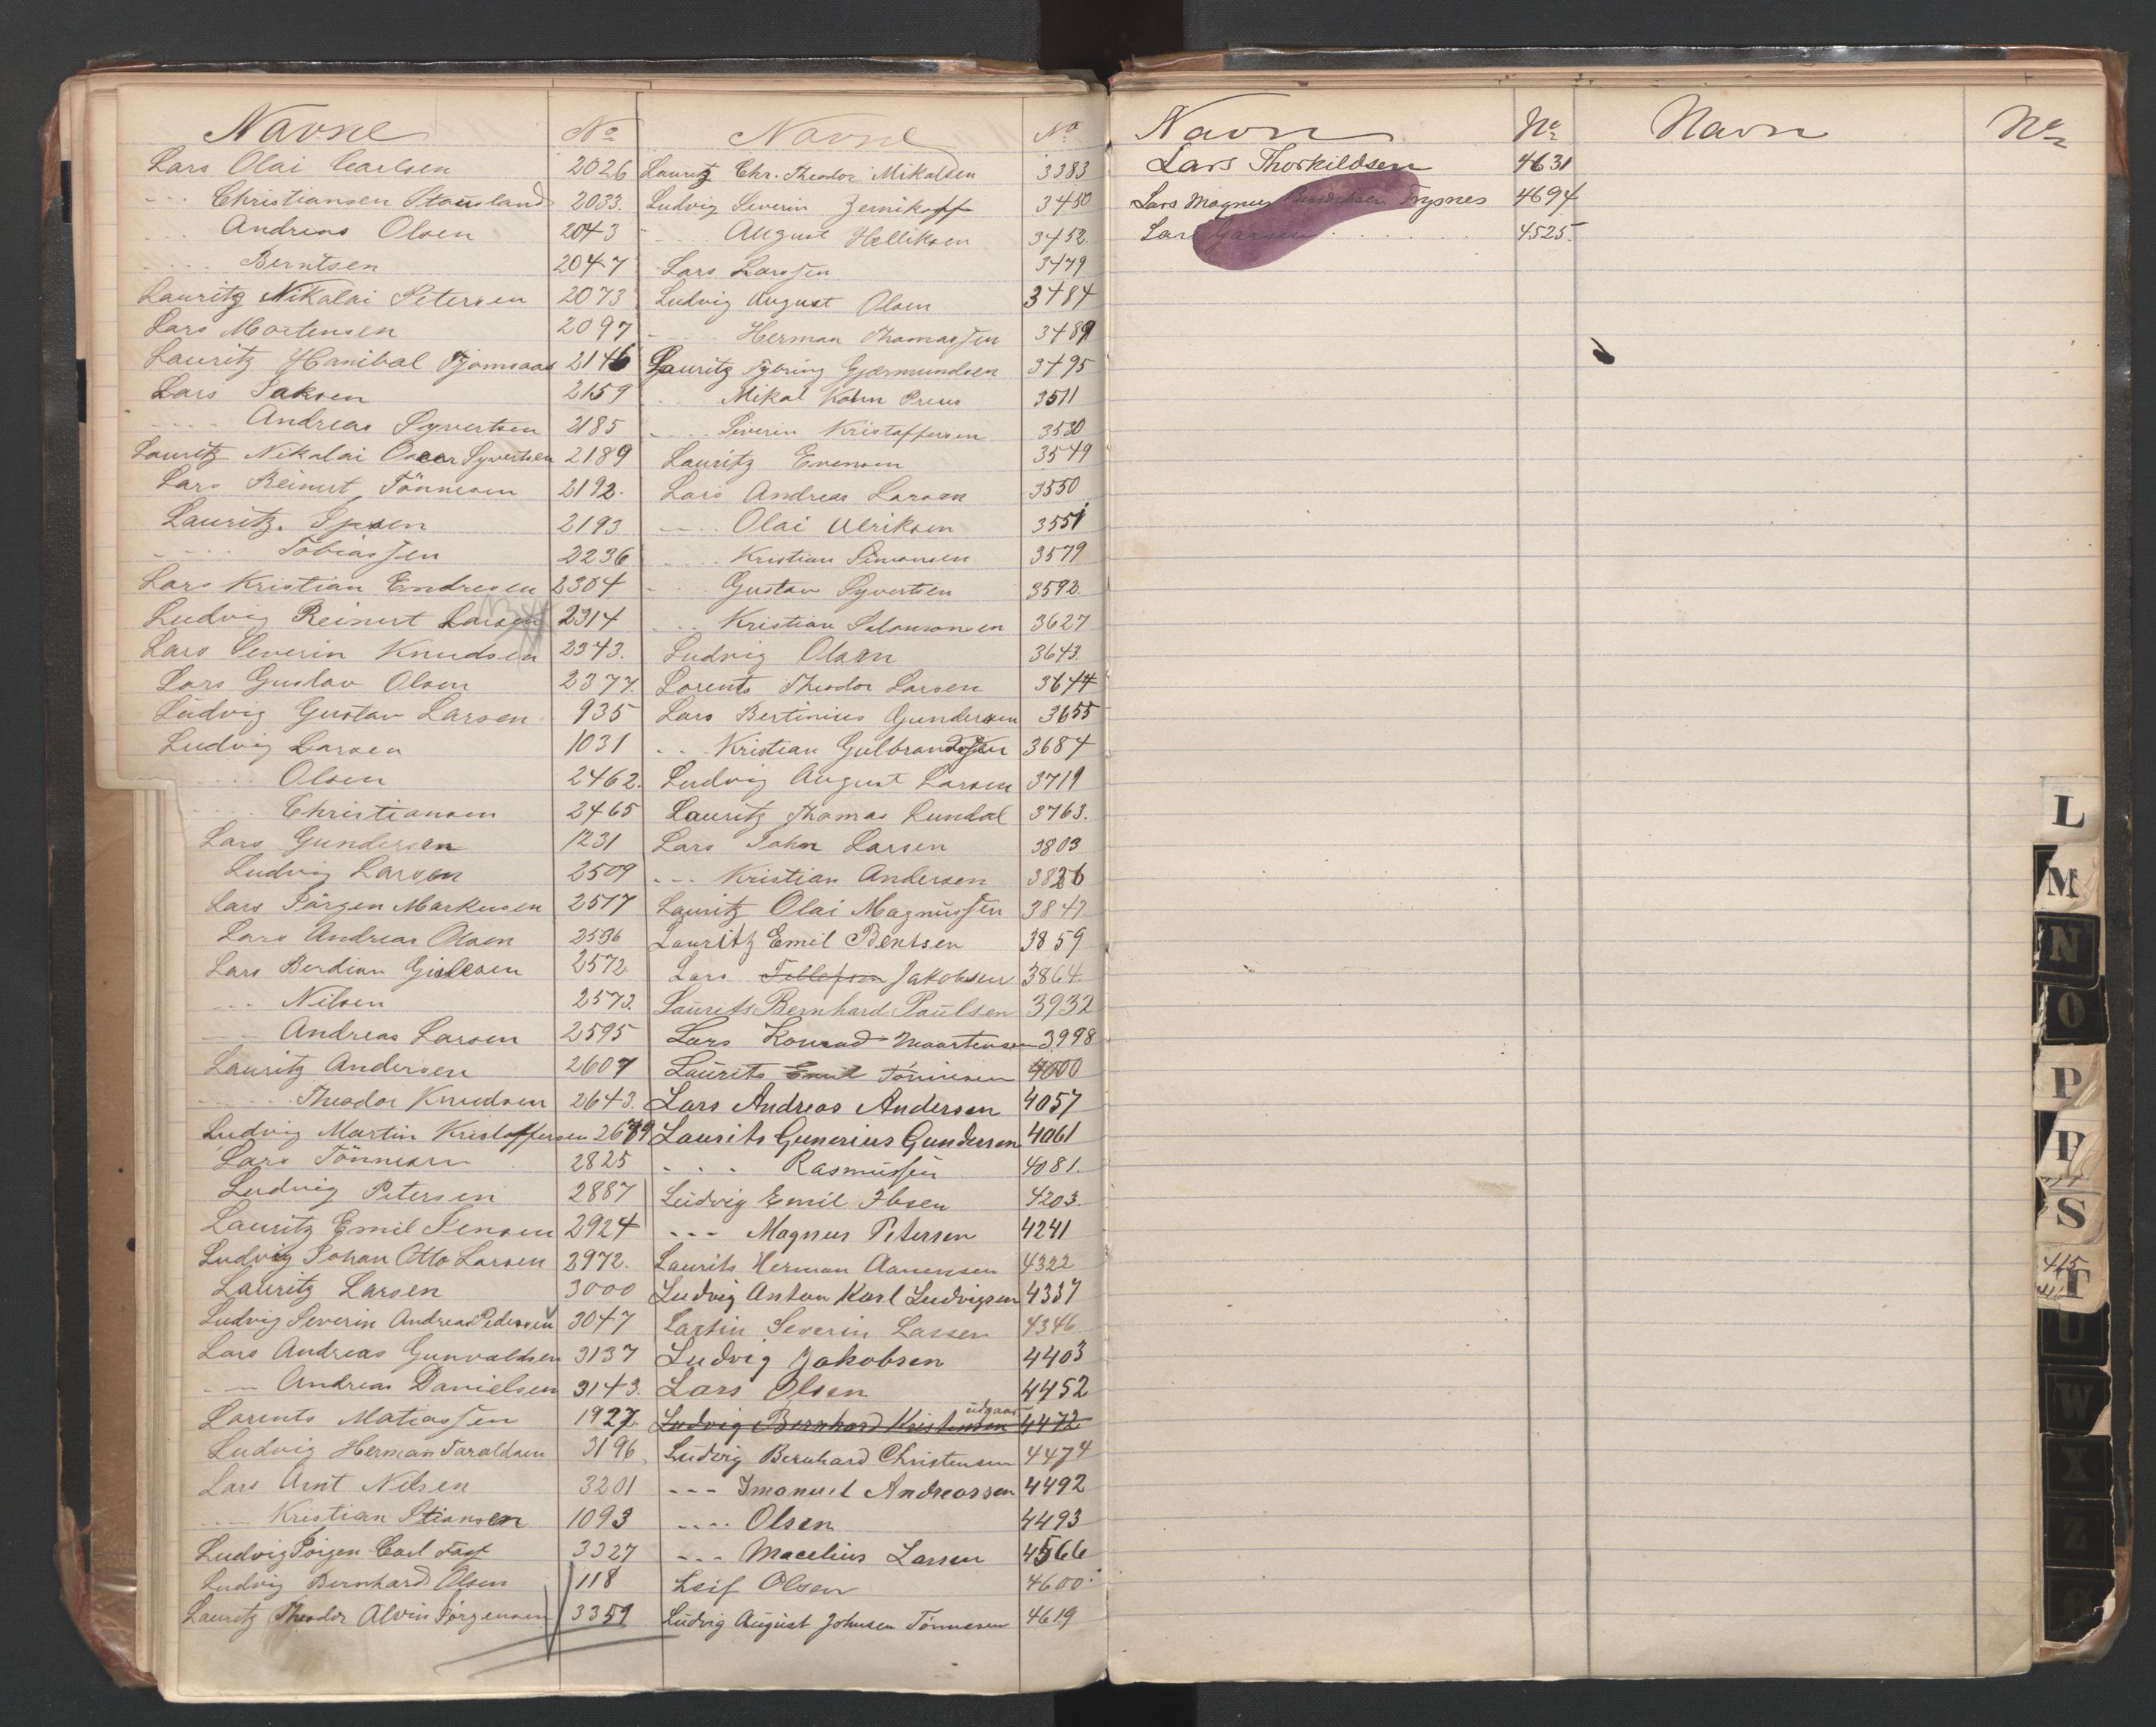 Navne No
Lars Olai Carlsen 2026
--- Christiansen Stausland 2033.
... Andreas Olsen 2043
.... Berntsen 2047
Lauritz Nikolai Petersen 2073
Lars Mortensen 2097
Lauritz Hanibal Tjomsaas 2146
Lars Isaksen 2159
.... Andreas Syvertsen 2185
Lauritz Nikolai Oscar Syvertsen 2189
Lars Reinert Tönnesen 2192.
Lauritz. Ipsen 2193
.... Tobiassen 2236
Lars Kristian Endresen 2304
Ludvig Reinert Larsen 2314
Lars Severin Knudsen 2343.
Lars Gustav Olsen 2377.
Ludvig Gustav Larsen 935
Ludvig Larsen 1031
.... Olsen 2462.
.... Christiansen 2465
Lars Gundersen 1231
Ludvig Larsen 2509
Lars Jörgen Markusen 2517
Lars Andreas Olsen 2536
Lars Berdian Gislesen 2572.
--- Nilsen 2573.
--- Andreas Larsen 2595
Lauritz Andersen 2607
.... Theodor Knudsen 2643.
Ludvig Martin Kristoffersen 2679
Lars Tönnesen 2825
Ludvig Petersen 2887
Lauritz Emil Jensen 2924
Ludvig Johan Otto Larsen 2972.
Lauritz Larsen 3000
Ludvig Severin Andreas Pedersen 3047
Lars Andreas Gunvaldsen 3137
--- Andreas Danielsen 3143.
Lorents Matiassen 1927.
Ludvig Herman Taraldsen 3196
Lars Arnt Nilsen 3201
.... Kristian Stiansen 1093
Ludvig Jörgen Carl 3327
Ludvig Bernhard Olsen 118
Lauritz Theodor Alvin Jörgensen 3359
Navne No
Lauritz Chr. Theodor Mikalsen 3383
Ludvig Severin Jernikoff 3450
.... August Helliksen 3452.
Lars Larssen 3479
Ludvig August Olsen 3484
- Herman Thomassen 3489
Lauritz Tybring Gjermundsen 3495
.. Mikal Kohn Preus 3511
.... Severin Kristoffersen 3530
Lauritz Evensen 3549
Lars Andreas Larsen 3550
--- Olai Ulriksen 3551
.... Kristian Simonsen 3579
- Gustav Syvertsen 3592.
... Kristian Salomonsen 3627
Ludvig Olsen 3643.
Lorents Theodor Larsen 3644
Lars Bertinius Gundersen 3655
.. Kristian Gulbrandsen 3684
Ludvig August Larsen 3719
Lauritz Thomas Lundal 3763.
Lars John Larsen 3803
--- Kristian Andersen 3826
Lauritz Olai Magnussen 3847
Lauritz Emil Bentsen 3859
Lars Tollefsen Jakobsen 3864.
Laurits Bernhard Paulsen 3932
Lars Konrad Maartensen 3998
Laurits Emil Tönnesen 4000
Lars Andreas Andersen 4057
Laurits Gunerius Gundersen 4061
. . . Rasmussen 4081.
Ludvig Emil Ibsen 4203.
--- Magnus Petersen 4241
Laurits Herman Aanensen 4322
Ludvig Anton Karl Ludvigsen 4337
Lartin Severin Lassen 4346
Ludvig Jakobsen 4403
Lars Olsen 4452
udgaar
Ludvig Bernhard Kristensen 4472
Ludvig Bernhard Christensen 4474
--- Imanuel Andreassen 4492
---- Olsen 4493
--- Macelius Larsen 4566
Leif Olsen 4600.
Ludvig August Johnsen Tönnesen 4619
Navn No
Lars Thorkildsen 4631
Lars Magnus Trysnes 4694
Lars 4525.
Navn No
L
M
N
O
P
P
S
T
U
W
X
Z